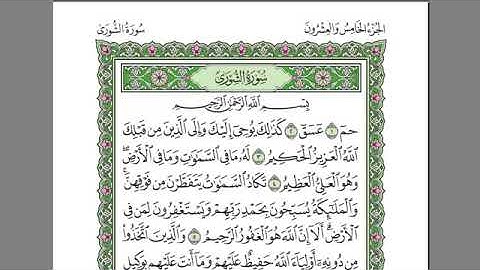 الجزء الخامس والعشرون
سورة الشورى
سُورَةُ الشُّورَىٰ
بِسْمِ اللَّهِ الرَّحْمَٰنِ الرَّحِيمِ
حمٓ ۝١ عٓسٓقٓ ۝٢ كَذَٰلِكَ يُوحِىٓ إِلَيْكَ وَإِلَى ٱلَّذِينَ مِن قَبْلِكَ
ٱللَّهُ ٱلْعَزِيزُ ٱلْحَكِيمُ ۝٣ لَهُۥ مَا فِى ٱلسَّمَٰوَٰتِ وَمَا فِى ٱلْأَرْضِ ۖ
وَهُوَ ٱلْعَلِىُّ ٱلْعَظِيمُ ۝٤ تَكَادُ ٱلسَّمَٰوَٰتُ يَتَفَطَّرْنَ مِن فَوْقِهِنَّ ۚ
وَٱلْمَلَٰٓئِكَةُ يُسَبِّحُونَ بِحَمْدِ رَبِّهِمْ وَيَسْتَغْفِرُونَ لِمَن فِى
ٱلْأَرْضِ ۗ أَلَآ إِنَّ ٱللَّهَ هُوَ ٱلْغَفُورُ ٱلرَّحِيمُ ۝٥ وَٱلَّذِينَ ٱتَّخَذُوا۟
مِن دُونِهِۦٓ أَوْلِيَآءَ ٱللَّهُ حَفِيظٌ عَلَيْهِمْ وَمَآ أَنتَ عَلَيْهِم بِوَكِيلٍ